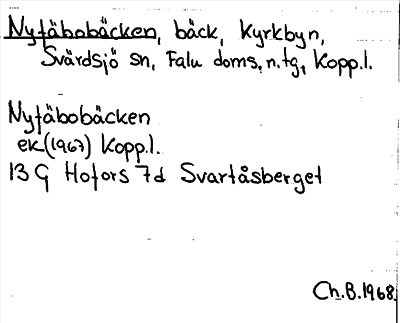 Nyfäbobäcken, bäck, Kyrkbyn,
Svärdsjö sn, Falu doms. n. tg, Kopp.l.
Nyfäbobäcken
ek (1967) Kopp.l.
13 G Hofors 7d Svartåsberget
Ch.B.1968.